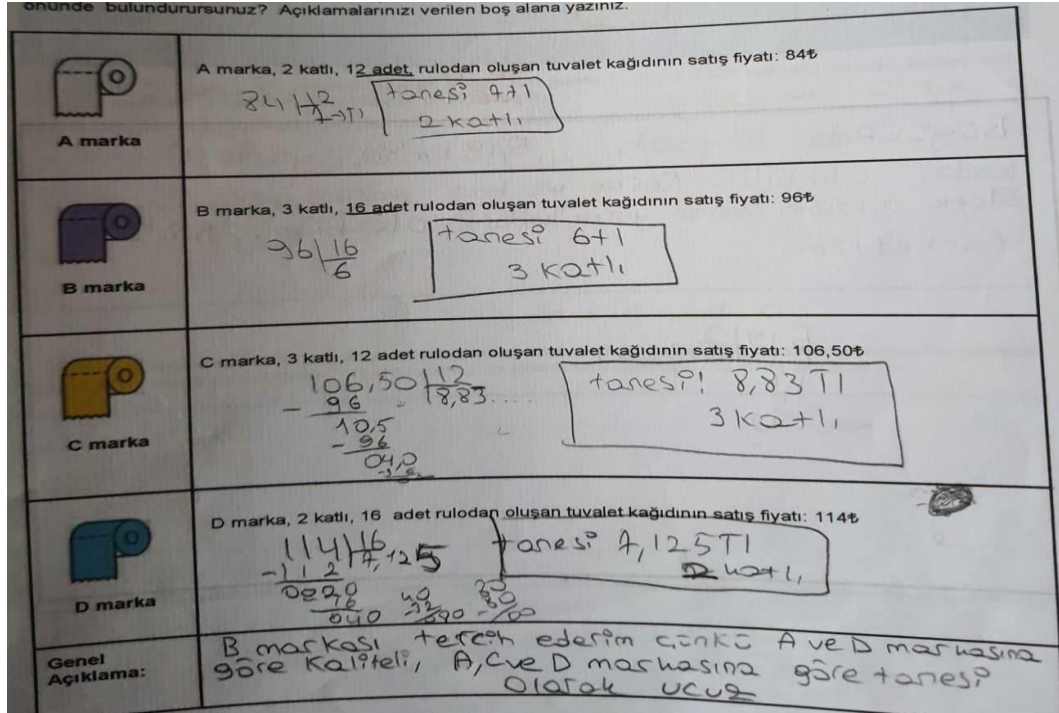 önünde bulundurursunuz? Açıklamalarınızı verilen boş alana yazınız.
A marka, 2 katlı, 12 adet, rulodan oluşan tuvalet kağıdının satış fiyatı: 84₺
84 12
7→Tl
tanesi 7tl
2 katlı
A marka
B marka, 3 katlı, 16 adet rulodan oluşan tuvalet kağıdının satış fiyatı: 96₺
96 16
6
tanesi 6tl
3 katlı
B marka
C marka, 3 katlı, 12 adet rulodan oluşan tuvalet kağıdının satış fiyatı: 106,50₺
106,50 12
- 96 8,83....
10,5
- 96
040
tanesi! 8,83 Tl
3 katlı
C marka
D marka, 2 katlı, 16 adet rulodan oluşan tuvalet kağıdının satış fiyatı: 114₺
114 16
-112 7,125
0020
16
040
40
-32
80
tanesi 7,125Tl
2 katlı
D marka
Genel Açıklama:
B markası tercih ederim çünkü A ve D markasına
göre kaliteli, A,C ve D markasına göre tanesi
olarak ucuz